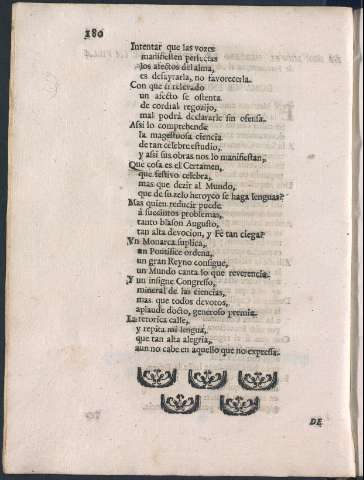 180
Intentar que las vozes
manifiesten perfectas
los afectos del alma,
es desayrarla, no favorecerla.
Con que si relevado
un afecto se ostenta
de cordial regozijo,
mal podrá declararse sin ofensa.
Assi lo comprehende
la magestuosa ciencia
de tan celebre estudio,
y assi sus obras nos lo manifiestan.
Que cosa es el Certamen,
que festivo celebra,
mas que dezir al Mundo,
que de su zelo heroyco se haga lenguas?
Mas quien reducir puede
à sucintos problemas,
tanto blason Augusto,
tan alta devocion, y Fè tan ciega?
Vn Monarca suplica,
un Pontifice ordena,
un gran Reyno consigue,
un Mundo canta lo que reverencia.
Y un insigne Congresso,
mineral de las ciencias,
mas que todos devotos,
aplaude docto, generoso premia.
La retorica calle,
y repita mi lengua,
que tan alta alegria,
aun no cabe en aquello que no expressa.
DE